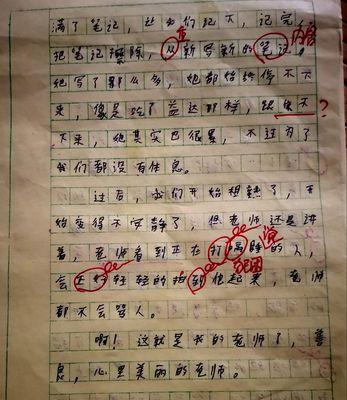 满了笔记,让我们记下,记完,
把笔记擦除,从新写新的笔记。
重
内容
他写了那么多,他都始终停不下
来,像是吃了益达那样,跟来不
?
下来,他其实已很累,不过为了
我们都没有休息。
过后,我们开始想熟了,开
始变得不安静了,但老师还是讲
着,老师看到正在打瞌睡的人,
会上轻轻的拍到他起来,老师
都不会骂人。
啊!这就是我的老师了,善
良,心里美丽的老师。